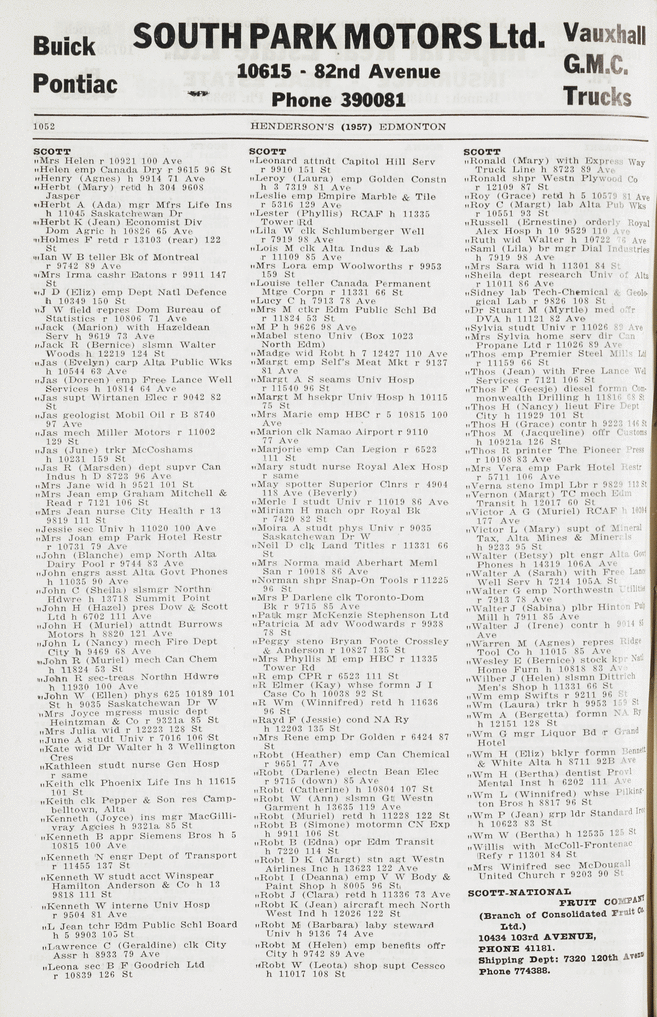 Buick
Pontiac
SOUTH PARK MOTORS Ltd.
10615 - 82nd Avenue
Phone 390081
Vauxhall
G.M.C.
Trucks
1052
HENDERSON'S (1957) EDMONTON
SCOTT
"Mrs Helen r 10921 100 Ave
"Helen emp Canada Dry r 9615 96 St
"Henry (Agnes) h 9914 71 Ave
"Herbt (Mary) retd h 304 9608
Jasper
"Herbt A (Ada) mgr Mfrs Life Ins
h 11045 Saskatchewan Dr
"Herbt K (Jean) Economist Div
Dom Agric h 10826 65 Ave
"Holmes F retd r 13103 (rear) 122
St
"Ian W B teller Bk of Montreal
r 9742 89 Ave
"Mrs Irma cashr Eatons r 9911 147
St
"J D (Eliz) emp Dept Natl Defence
h 10349 150 St
"J W field repres Dom Bureau of
Statistics r 10806 71 Ave
"Jack (Marion) with Hazeldean
Serv h 9619 73 Ave
"Jack R (Bernice) slsmn Walter
Woods h 12219 124 St
"Jas (Evelyn) carp Alta Public Wks
h 10544 63 Ave
"Jas (Doreen) emp Free Lance Well
Services h 10814 64 Ave
"Jas supt Wirtanen Elec r 9042 82
St
"Jas geologist Mobil Oil r B 8740
97 Ave
"Jas mech Miller Motors r 11002
129 St
"Jas (June) trkr McCoshams
h 10231 159 St
"Jas R (Marsden) dept supvr Can
Indus h D 8723 96 Ave
"Mrs Jane wid h 9521 101 St
"Mrs Jean emp Graham Mitchell &
Read r 7121 106 St
"Mrs Jean nurse City Health r 13
9819 111 St
"Jessie sec Univ h 11020 100 Ave
"Mrs Joan emp Park Hotel Restr
r 10731 79 Ave
"John (Blanche) emp North Alta
Dairy Pool r 9744 83 Ave
"John engrs asst Alta Govt Phones
h 11035 90 Ave
"John C (Sheila) slsmgr Northn
Hdwre h 13718 Summit Point
"John H (Hazel) pres Dow & Scott
Ltd h 6702 111 Ave
"John H (Muriel) attndt Burrows
Motors h 8820 121 Ave
"John L (Nancy) mech Fire Dept
City h 9469 68 Ave
"John R (Muriel) mech Can Chem
h 11824 53 St
"John R sec-treas Northn Hdwre
h 11930 100 Ave
"John W (Ellen) phys 625 10189 101
St h 9035 Saskatchewan Dr W
"Mrs Joyce mgress music dept
Heintzman & Co r 9321a 85 St
"Mrs Julia wid r 12223 128 St
"June A studt Univ r 7016 106 St
"Kate wid Dr Walter h 3 Wellington
Cres
"Kathleen studt nurse Gen Hosp
r same
"Keith clk Phoenix Life Ins h 11615
101 St
"Keith clk Pepper & Son res Camp-
belltown, Alta
"Kenneth (Joyce) ins mgr MacGilli-
vray Agcies h 9321a 85 St
"Kenneth B appr Siemens Bros h 5
10815 100 Ave
"Kenneth N engr Dept of Transport
r 11455 137 St
"Kenneth W studt acct Winspear
Hamilton Anderson & Co h 13
9818 111 St
"Kenneth W interne Univ Hosp
r 9504 81 Ave
"L Jean tchr Edm Public Schl Board
h 5 9903 105 St
"Lawrence C (Geraldine) clk City
Assr h 8933 79 Ave
"Leona sec B F Goodrich Ltd
r 10839 126 St
SCOTT
"Leonard attndt Capitol Hill Serv
r 9910 151 St
"Leroy (Laura) emp Golden Constn
h 3 7319 81 Ave
"Leslie emp Empire Marble & Tile
r 5316 129 Ave
"Lester (Phyllis) RCAF h 11335
Tower Rd
"Lila W clk Schlumberger Well
r 7919 98 Ave
"Lois M clk Alta Indus & Lab
r 11109 85 Ave
"Mrs Lora emp Woolworths r 9953
159 St
"Louise teller Canada Permanent
Mtge Corpn r 11331 66 St
"Lucy C h 7913 78 Ave
"Mrs M ctkr Edm Public Schl Bd
r 11824 53 St
"M P h 9626 98 Ave
"Mabel steno Univ (Box 1023
North Edm)
"Madge wid Robt h 7 12427 110 Ave
"Margt emp Self's Meat Mkt r 9137
81 Ave
"Margt A S seams Univ Hosp
r 11540 96 St
"Margt M hsekpr Univ Hosp h 10115
75 St
"Mrs Marie emp HBC r 5 10815 100
Ave
"Marion clk Namao Airport r 9110
77 Ave
"Marjorie emp Can Legion r 6523
111 St
"Mary studt nurse Royal Alex Hosp
r same
"May spotter Superior Clnrs r 4904
118 Ave (Beverly)
"Merle I studt Univ r 11019 86 Ave
"Miriam H mach opr Royal Bk
r 7420 82 St
"Moira A studt phys Univ r 9035
Saskatchewan Dr W
"Neil D clk Land Titles r 11331 66
St
"Mrs Norma maid Aberhart Meml
San r 10018 86 Ave
"Norman shpr Snap-On Tools r 11225
96 St
"Mrs P Darlene clk Toronto-Dom
Bk r 9715 85 Ave
"Patk mgr McKenzie Stephenson Ltd
"Patricia M adv Woodwards r 9938
78 St
"Peggy steno Bryan Foote Crossley
& Anderson r 10827 135 St
"Mrs Phyllis M emp HBC r 11335
Tower Rd
"R emp CPR r 6523 111 St
"R Elmer (Kay) whse formn J I
Case Co h 10038 92 St
"R Wm (Winnifred) retd h 11636
96 St
"Rayd F (Jessie) cond NA Ry
h 12203 135 St
"Mrs Rene emp Dr Golden r 6424 87
St
"Robt (Heather) emp Can Chemical
r 9651 77 Ave
"Robt (Darlene) electn Bean Elec
r 9715 (down) 85 Ave
"Robt (Catherine) h 10804 107 St
"Robt W (Ann) slsmn Gt Westn
Garment h 13635 119 Ave
"Robt (Muriel) retd h 11228 122 St
"Robt B (Simone) motormn CN Exp
h 9911 106 St
"Robt B (Edna) opr Edm Transit
h 7220 114 St
"Robt D K (Margt) stn agt Westn
Airlines Inc h 13623 122 Ave
"Robt I (Deanna) emp V W Body &
Paint Shop h 8005 96 St
"Robt J (Clara) retd h 11336 73 Ave
"Robt K (Jean) aircraft mech North
West Ind h 12026 122 St
"Robt M (Barbara) laby steward
Univ h 9136 74 Ave
"Robt M (Helen) emp benefits offr
City h 9742 89 Ave
"Robt W (Leota) shop supt Cessco
h 11017 108 St
SCOTT
"Ronald (Mary) with Express Way
Truck Line h 8723 89 Ave
"Ronald shpr Westn Plywood Co
r 12109 87 St
"Roy (Grace) retd h 5 10579 81 Ave
"Roy C (Margt) lab Alta Pub Wks
r 10551 93 St
"Russell (Ernestine) orderly Royal
Alex Hosp h 10 9529 110 Av
"Ruth wid Walter h 10722 76 Ave
"Saml (Lila) br mgr Dial Industries
h 7919 98 Ave
"Mrs Sara wid h 11301 84 St
"Sheila dept research Univ of Alta
r 11011 86 Ave
"Sidney lab Tech-Chemical & Geolo-
gical Lab r 9826 108 St
"Dr Stuart M (Myrtle) med offr
DVA h 11121 82 Ave
"Sylvia studt Univ r 11026 89 Ave
"Mrs Sylvia home serv dir Can
Propane Ltd r 11026 89 Ave
"Thos emp Premier Steel Mills Ltd
r 11159 66 St
"Thos (Jean) with Free Lance Wel
Services r 7121 106 St
"Thos F (Geesje) diesel formn Com-
monwealth Drilling h 11816 St
"Thos H (Nancy) lieut Fire Dept
City h 11929 101 St
"Thos H (Grace) contr h 9223 146 St
"Thos M (Jacqueline) offr Customs
h 10921a 126 St
"Thos R printer The Pioneer Press
r 10108 83 Ave
"Mrs Vera emp Park Hotel Restr
r 5711 106 Ave
"Verna steno Impl Lbr r 9829 112 St
"Vernon (Margt) TC mech Edm
Transit h 12017 60 St
"Victor A G (Muriel) RCAF h
177 Ave
"Victor L (Mary) supt of Mineral
Tax, Alta Mines & Minerals
h 9233 95 St
"Walter (Betsy) plt engr Alta Govt
Phones h 14319 106A Ave
"Walter A (Sarah) with Free Lane
Well Serv h 7214 105A St
"Walter G emp Northwestn Utilities
r 7913 78 Ave
"Walter J (Sabina) plbr Hinton Pulp
Mill h 7911 85 Ave
"Walter J (Irene) contr h 9014
Ave
"Warren M (Agnes) repres Ridge
Tool Co h 11015 85 Ave
"Wesley E (Bernice) stock kpr Natl
Home Furn h 10818 83 Ave
"Wilber J (Helen) slsmn Dittrich
Men's Shop h 11331 66 St
"Wm emp Swifts r 9211 96 St
"Wm (Laura) trkr h 9953 159 St
"Wm A (Bergetta) formn NA Ry
h 12151 128 St
"Wm G mgr Liquor Bd r Grand
Hotel
"Wm H (Eliz) bklyr formn Bennett
& White Alta h 8711 92B Ave
"Wm H (Bertha) dentist Provl
Mental Inst h 6202 111 Ave
"Wm L (Winnifred) whse Pilking-
ton Bros h 8817 96 St
"Wm P (Jean) grp ldr Standard Iron
h 10623 83 St
"Wm W (Bertha) h 12535 125 St
"Willis with McColl-Frontenac
Refy r 11301 84 St
"Mrs Winifred sec McDougall
United Church r 9203 90 St
SCOTT-NATIONAL
FRUIT COMPANY
(Branch of Consolidated Fruit Co.
Ltd.)
10434 103rd AVENUE,
PHONE 41181.
Shipping Dept: 7320 120th Avenue
Phone 774388.